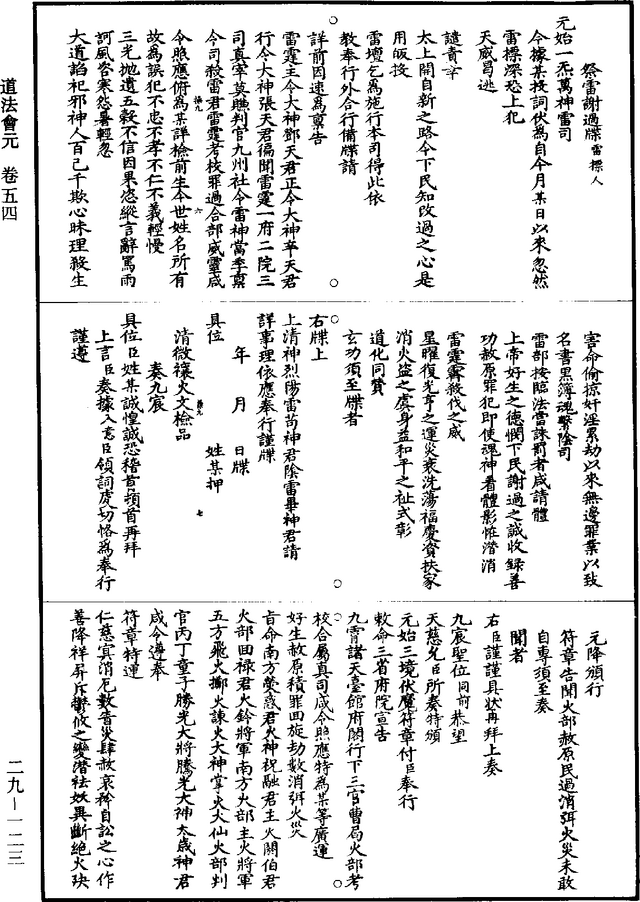 道法會元　卷五四
祭雷謝過牒雷摽人
元始一炁萬神雷司
今據某投詞伏為自今月某日以來忽然
雷摽深恐上犯
天威曷逃
譴責辛
太上開自新之路令下民知改過之心是
用皈投
雷壇乞為施行本司得此依
教奉行外合行備牒請
詳前因速為稟告
雷霆主令大神鄧天君正令大神辛天君
行令大神張天君徧聞雷霆一府二院三
司真宰莫賺判官九州社令雷神當季稟
令司殺雷君雷霆考校罪過合部威靈咸
令照應俯為某詳檢前生今世姓名所有
故為誤犯不忠不孝不仁不義輕慢
三光拋遺五穀不信因果恣縱言辭罵雨
訶風咎寒怨暑輕忽
大道諂祀邪神人百己千欺心昧理殺生
害命偷掠奸淫累劫以來無邊罪業以致
名書黑簿魂繫陰司
雷部按臨法當誅罰者咸請體
上帝好生之德憫下民謝過之誠收錄善
功赦原罪犯即使魂神看體影怪潛消
雷霆霽殺伐之威
星曜復光亨之運災衰洗蕩福慶資扶家
消火盜之虞身益和平之祉式彰
道化同贊
玄功須至牒者
右牒上
上清神烈陽雷苟神君陰雷畢神君請
詳事理依應奉行謹牒
年　月　日牒
具位　姓某押
清微禳火文檢品
奏九宸
具位臣姓某誠惶誠恐稽首頓首再拜
上言臣奏據入意臣領詞虔切恪為奉行
謹遵
元降頒行
符章告聞火部赦原民過消弭火災未敢
自專須至奏
聞者
右臣謹謹具狀再拜上奏
九宸聖位同前恭望
天慈允臣所奏特頒
元始三境伏魔符章付臣奉行
敕命三省府院宣告
九霄諸天臺館府閣行下三官曹局火部考
校合屬真司咸令照應特為某等廣運
好生赦原積罪回旋劫數消弭火災
旨命南方熒惑君火神祝融君主火閼伯君
火部回祿君火鈴將軍南方火部主火將軍
五方飛火擲火諫火大神掌火大仙火部判
官丙丁童子勝光大將騰光大神太歲神君
咸令遵奉
符章特運
仁慈賓消厄數眚災肆赦哀矜自訟之心作
善降祥屏斥鬱攸之變潛祛妖異斷絕火殃
二九－一二三